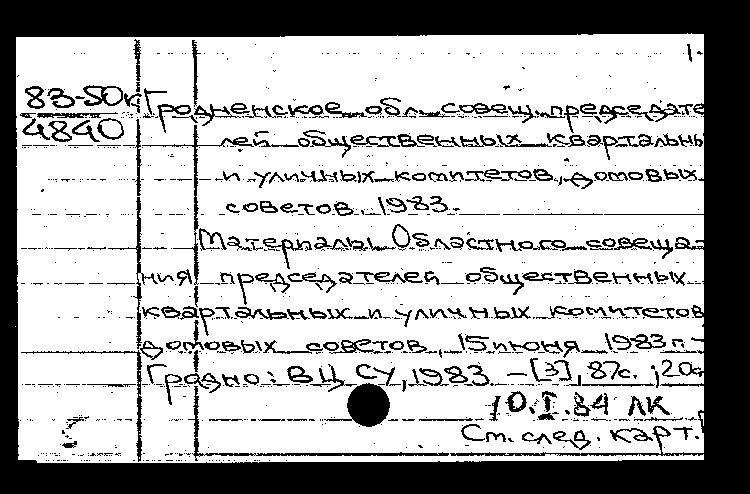 1.
83-50к Гродненское обл. совещ. председате
4840
лей общественных квартальны
и уличных комитетов, домовых
советов. 1983.
Материалы Областного совеща-
ния председателей общественных
квартальных и уличных комитетов
домовых советов, 15 июня 1983 г. -
Гродно: ВЦ СУ, 1983 - [3], 87с. ; 20с
10.I.84 ЛК
См. след. карт.